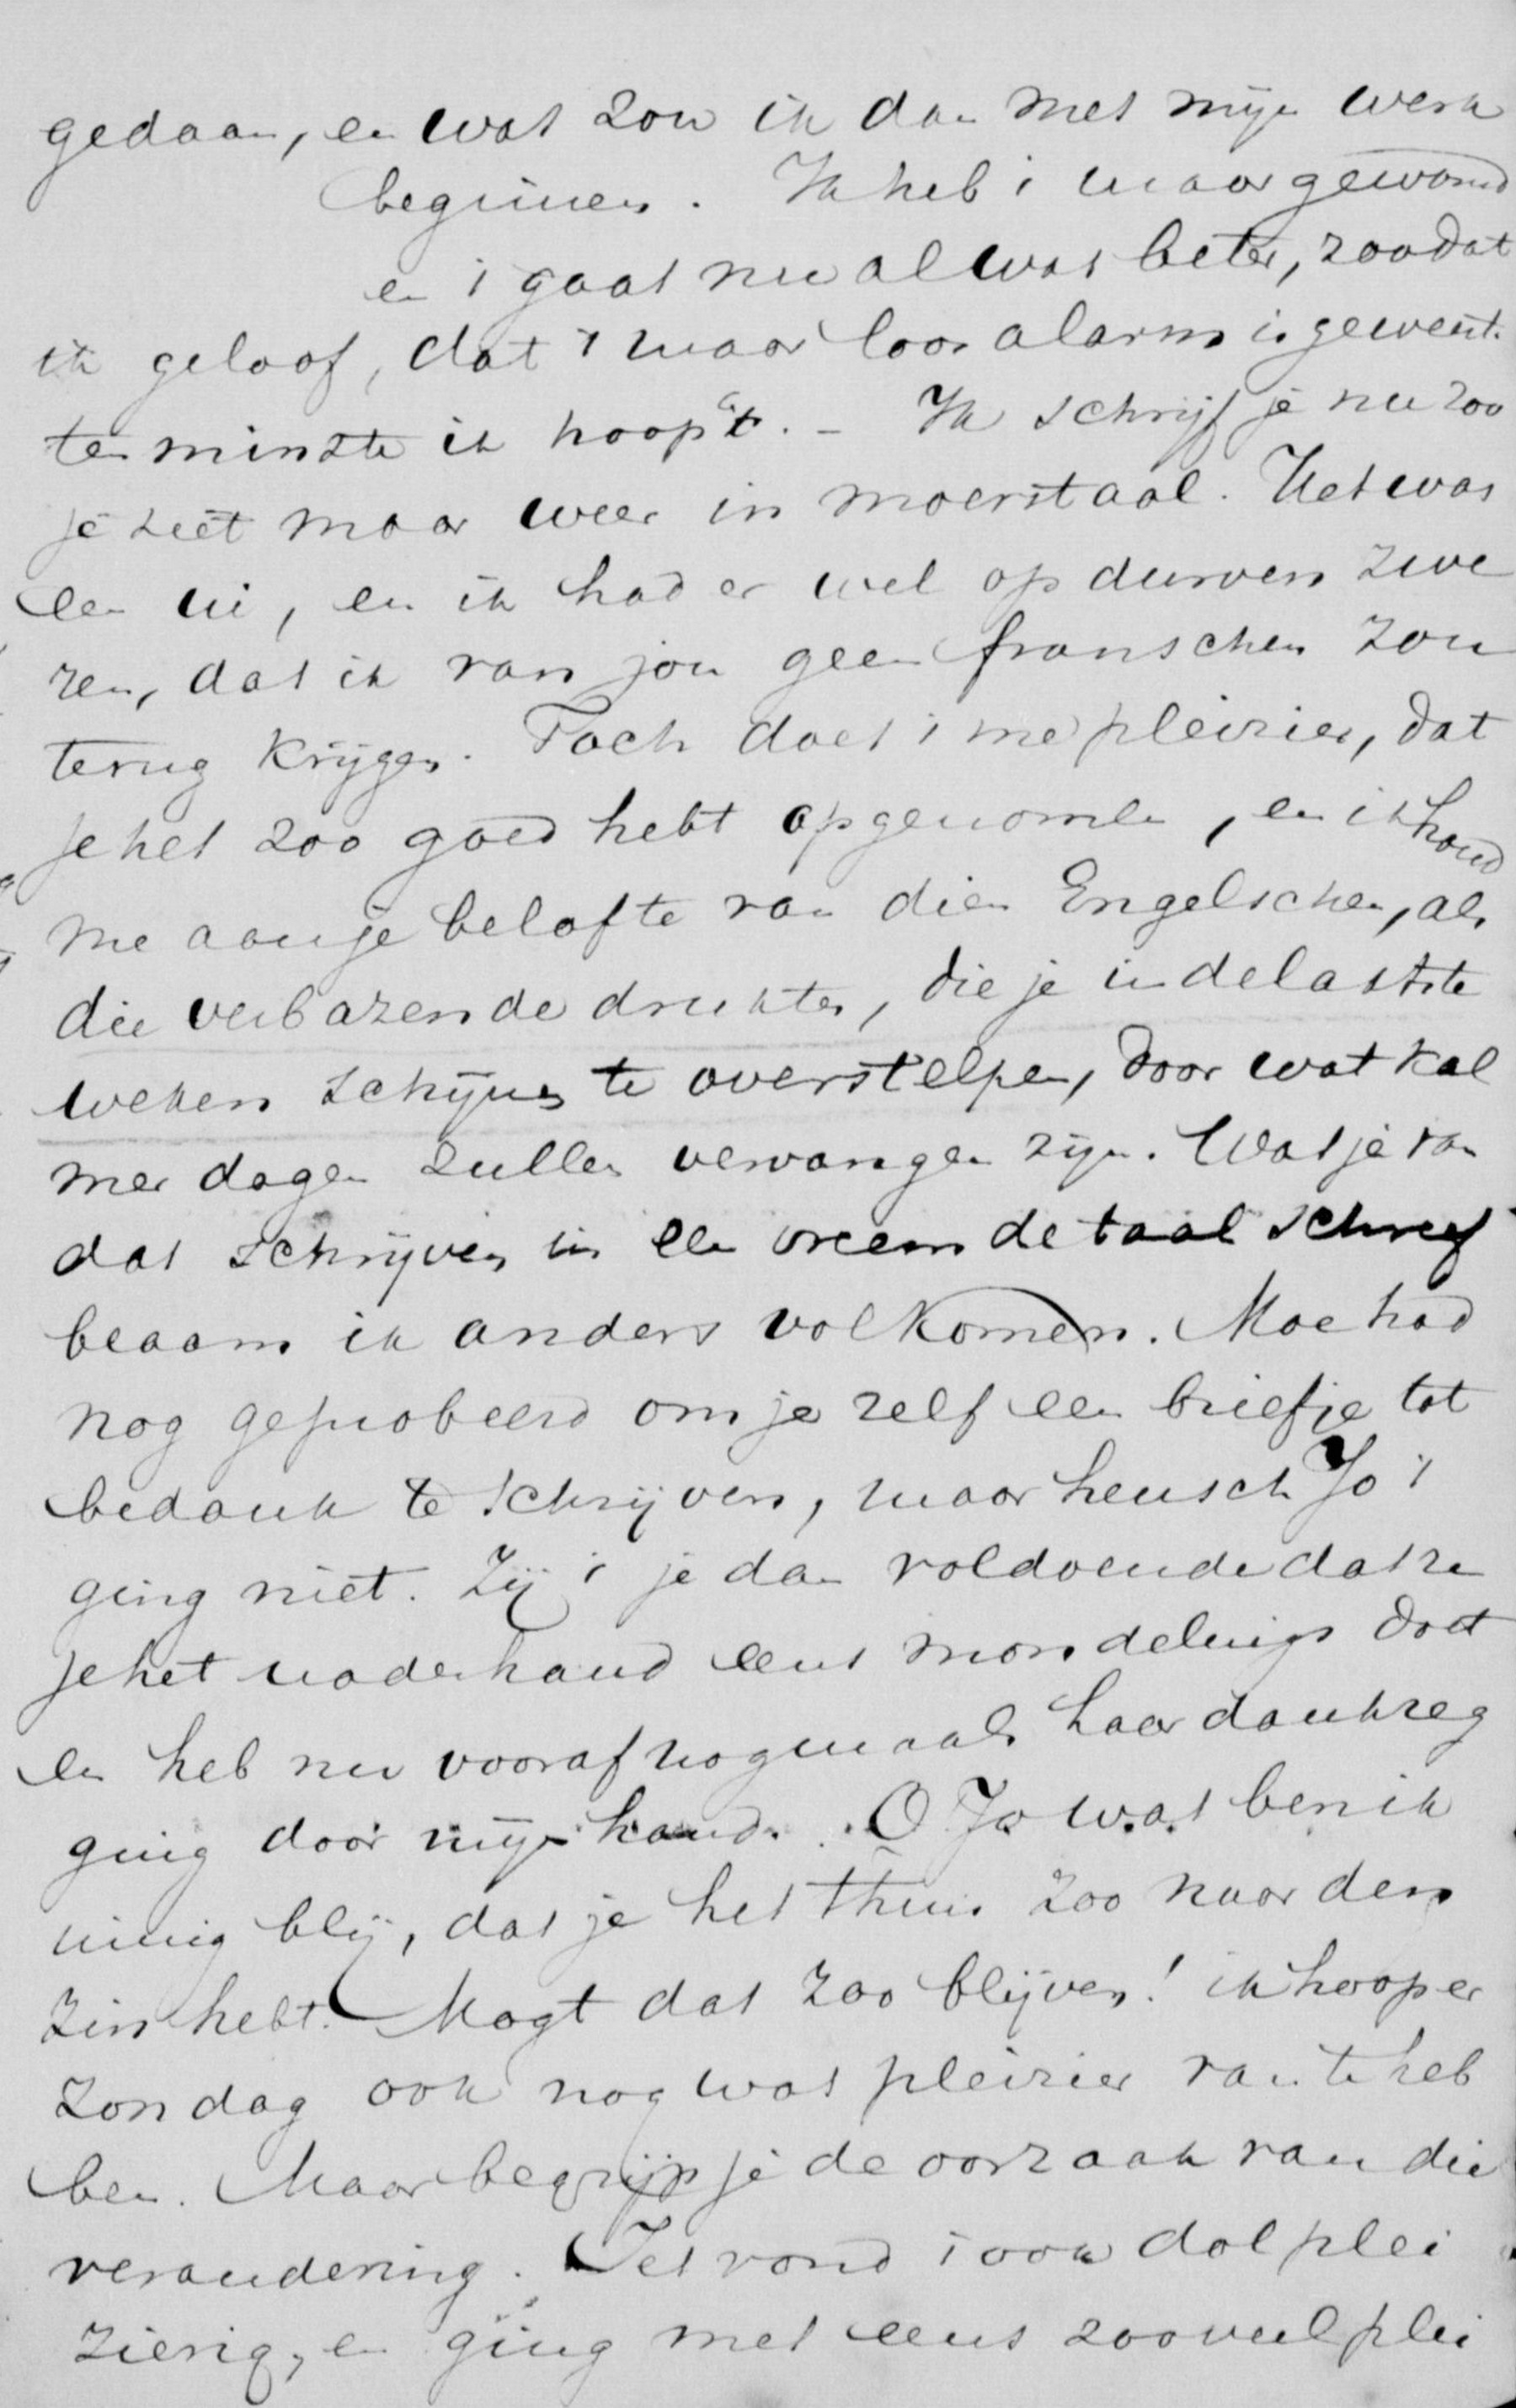 gedaan, en wat zou ik dan met mijn werk
beginnen. Ik heb 't maar gewoond
en 't gaat nu al wat beter, zoodat
ik geloof, dat 't maar loos alarm is geweest.
ten minste ik hoop 't. - Ik schrijf je nu zoo
je ziet maar weer in moerstaal. Het was
een ui, en ik had er wel op durven zwe
ren, dat ik van jou geen franschen zou
terug krijgen. Toch doet 't me pleizier, dat
je het zoo goed hebt opgenomen, en ik houd
me aan je belofte van dien Engelschen, als
die verbazende drukten, die je in de laatste
weken schijnen te overstelpen, door wat kal
mer dagen zullen vervangen zijn. Wat je van
dat schrijven in een vreemde taal schreef
beaam ik anders volkomen. Moe had
nog geprobeerd om je zelf een briefje tot
bedank te schrijven, maar heusch Jo 't
ging niet. Zij 't je dan voldoende dat ze
je het naderhand eens mondelings doet
en heb nu vooraf nogmaals haar dankzeg
ging door mijn hand. O Jo wat ben ik
innig blij, dat je het thuis zoo naar den
zin hebt. Mogt dat zoo blijven! ik hoop er
Zondag ook nog wat pleizier van te heb
ben. Maar begrijp je de oorzaak van die
verandering. Jet vond 't ook dol plei
zierig, en ging met eens zooveel plei